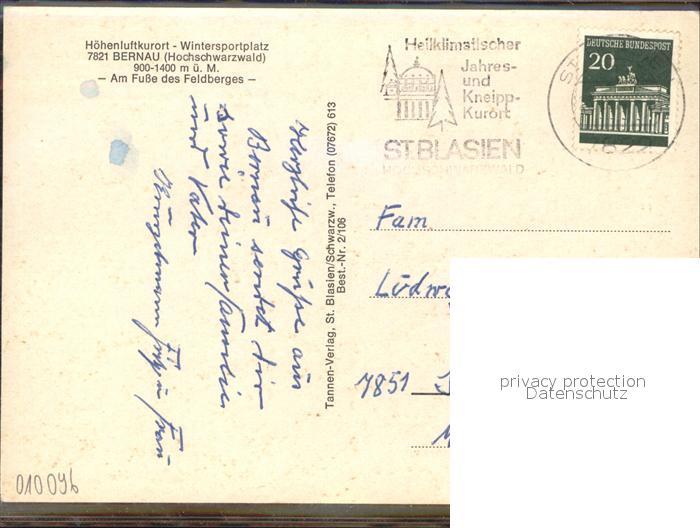 Höhenluftkurort - Wintersportplatz
7821 BERNAU (Hochschwarzwald)
900-1400 m ü. M.
— Am Fuße des Feldberges —
Heilklimatischer
Jahres-
und
Kneipp-
Kurort
ST.BLASIEN
HOCHSCHWARZWALD
DEUTSCHE BUNDESPOST
20
Herzliche Grüße aus
Bernau sendet dir
sowie deiner Familie
und Vater
Fritz u Frau
Tannen-Verlag, St. Blasien/Schwarzw., Telefon (07672) 613
Best.-Nr. 2/106
Fam
7851
privacy protection
Datenschutz
010096